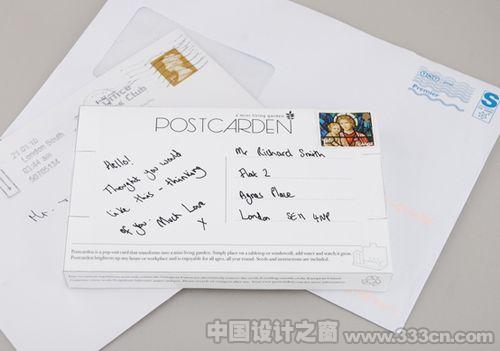 a mini living garden
POSTCARDEN
Hello!
Thought you would
like this - thinking
of you. Much Love
x
Mr Richard Smith
Flat 2
Agnes Place
London SE11 4NP
LARGE
Postcarden is a pop-out card that transforms into a mini living garden. Simply place on a tabletop or windowsill, add water and watch it grow.
Postcarden brightens up any home or workplace and is enjoyable for all ages, all year round. Seeds and instructions are included.
Office
Club
21.01.10
London South
03:44 am
50705114
Mr.
Premier
S
中国设计之窗
www.333cn.com